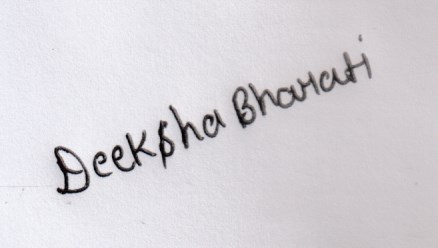 Deeksha Bharati